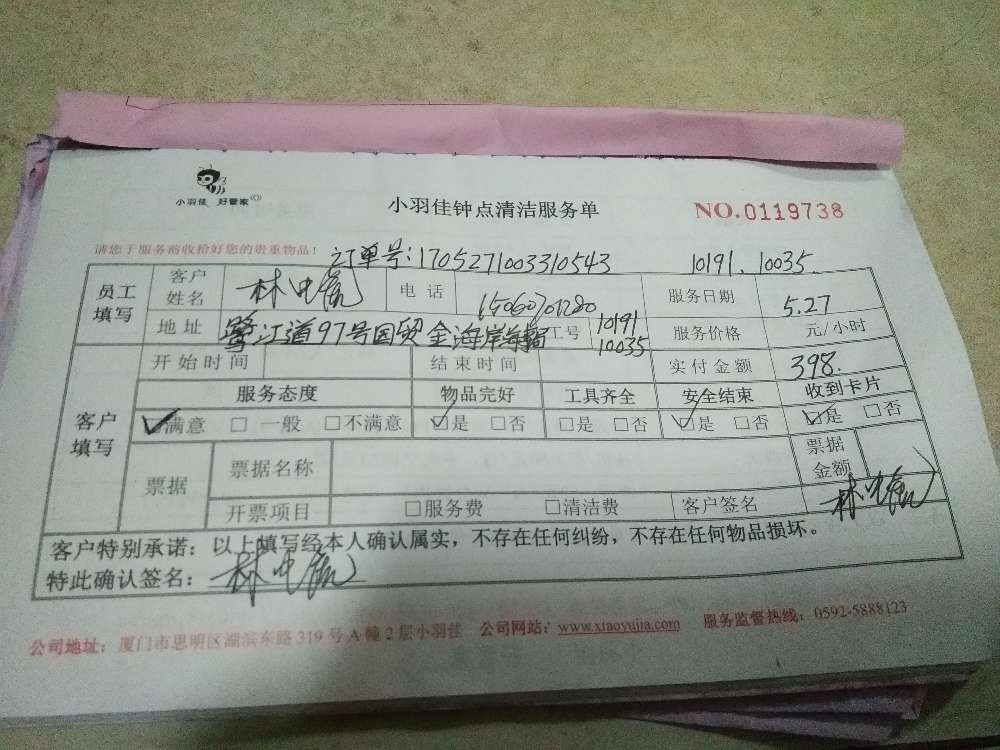 小羽佳 好管家
小羽佳钟点清洁服务单
NO.0119738
请您于服务前收拾好您的贵重物品!
订单号:1705271003310543 10191.10035.
员工填写 客户姓名 林 电话 15060701280 服务日期 5.27
地址 鹭江道97号国贸金海岸 工号 10191 10035 服务价格 元/小时
客户填写 开始时间 结束时间 实付金额 398.
服务态度 物品完好 工具齐全 安全结束 收到卡片
☑满意 □ 一般 □不满意 ☑是 □否 □是 □否 ☑是 □否 ☑是 □否
票据 票据名称 票据金额
开票项目 □服务费 □清洁费 客户签名 林
客户特别承诺:以上填写经本人确认属实,不存在任何纠纷,不存在任何物品损坏。
特此确认签名: 林
公司地址:厦门市思明区湖滨东路 319 号 A 幢 2 层小羽佳 公司网站:www.xiaoyujia.com 服务监督热线:0592-5888123